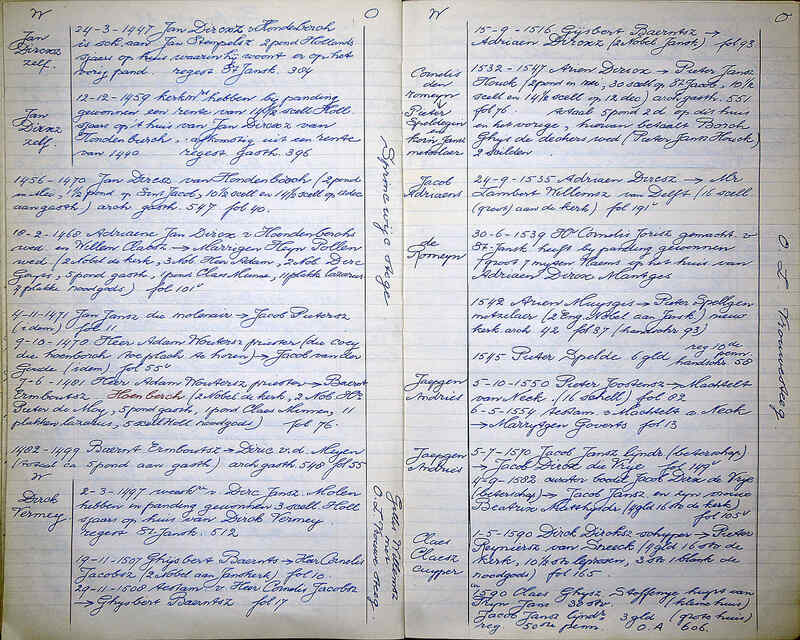 W O
Jan
Dircxz
zelf.
24-3-1447 Jan Dircxz v Hondebergh
is sch. aan Jan Stempelsz 2 pond Hollands
sjaars op huis waarin hij woont en op het
vorig pand. regest St Jansk. 304
Jan
Dircxz
zelf.
12-12-1459 kerkmrs hebben bij panding
gewonnen een rente van 14½ scell Holl.
sjaars op 't huis van Jan Dircxz van
Hondenbergh, afkomstig uit een rente
van 1440 regest gasth. 396
1456-1470 Jan Dircxz van Hondenbergh (2 pond
in Mei, 1½ pond op Sant Jacob, 10½ scell en 14½ scell op 12 dec
aan gasth) arch gasth. 547 fol 40.
18-2-1468 Adriaene Jan Dircxz v Hoendenberghs
wed. en Willem Claesz. → Marrigen Heyn Pollen
wed. (2 Nobel de kerk, 3 Nob. Heer Adam, 2 Nob. Dirc
Gouys, 5 pond gasth, 1 pond Claes Minne, 11 plakke lazarus
2 plakke noodgods) fol 101v
4-11-1471 Jan Jansz die molenair → Jacob Pietersz
(idem) fol 11
9-10-1478 Heer Adam Woutersz priester (die coey
die hoenborch toe plach te horen) → Jacob van der
Goude (idem) fol 55v
7-6-1481 Heer Adam Woutersz priester → Baernt
Ermboutsz Hoenberch (2 Nobel de kerk, 2 Nob Hr
Pieter de Moy, 5 pond gasth, 1 pond Claes Minnen, 11
plakken lazarus, 5 scell Holl noodgods) fol 76.
1482-1499 Baernt Ermboutsz → Dirc v.d. Meyen
(totaal ca 5 pond aan gasth) arch gasth 548 fol 55
W
Dirck
Vermey
2-3-1497 weesmrs v Dirc Jansz. Molen
hebben in panding gewonnen 3 scell Holl
sjaars op huis van Dirck Vermey.
regest St. Jansk. 512
19-11-1507 Ghijsbert Baernts → Heer Cornelis
Jacobsz (2 Nobel aan Janskerk) fol 10.
29-11-1508 testam. v Heer Cornelis Jacobsz
→ Ghijsbert Baerntsz fol 17
Spronc wijc stege
Jorden Willemsz
nu
O L Vrouwe steeg.
W O
15-9-1516 Gijsbert Baerntsz →
Adriaen Dircxz (2 Nobel Jansk) fol 93.
Cornelis
den
Romeyn
Pieter
Speldegen
en
Korn Jansz
metselaer
1532-1547 Arien Dircxz → Pieter Jansz
Houck (2 pond in mei, 30 scell op St Jacob, 10½
scell en 14½ scell op 12 dec) arch gasth. 551
fol 76. totaal 5 pond 2 d op dit huis
het vorige, hiervan betaalt Borch
Ghijs de deckers wed (Pieter Jans Houck)
2 scilden
Jacob
Adriaens
24-9-1535 Adriaen Dircsz → Mr
Lambert Willemsz van Delft (16 scell
(groot) aan de kerk) fol 191v
de
Romeyn
30-6-1539 Hr Cornelis Joresz gemacht. v
St. Jansk heeft bij panding gewonnen
1 groot 7 myten Vlaems op het huis van
Adriaen Dircxz Mantges
1542 Arien Muysgis → Pieter Spellgen
metzelaer (2 Eng. Nobel aan Jansk) nieuw
kerk arch 42 fol 37 (handschr 93)
1545 Pieter Spelde 6 gld reg 10de penn.
handschr. 58
Jaepgen
Andries
5-10-1550 Pieter Joostensz → Machtelt
van Neck. (16 schell) fol 82
6-5-1554 testam. v Machtelt v. Neck
→ Marrytgen Goverts fol 13
Jaepgen
Andries
5-7-1570 Jacob Jansz lijndr (beterschap)
→ Jacob Dircxz de Vrije fol 149v
4-9-1582 curator boedel Jacob Dircx de Vrije
(beterschap) → Jacob Jansz en zijn vrouw
Beatrix Matthijsdr (4 gld 16 st de kerk)
fol 105v
Claes
Claesz
cuyper
1-5-1590 Dirck Dircksz schipper → Pieter
Reyniersz van Dreeck (4 gld 16 st v de
kerk, 10½ st leprozen, 3 st 1 blank de
noodgods) fol 165.
1590 Claes Ghysz. Stoffenge huys van
Kryn Jans 30 stv. (kleine huis)
Jacob Jansz lijndr 3 gld (grote huis)
reg 50ste penn. O A 606.
O L Vrouwesteeg